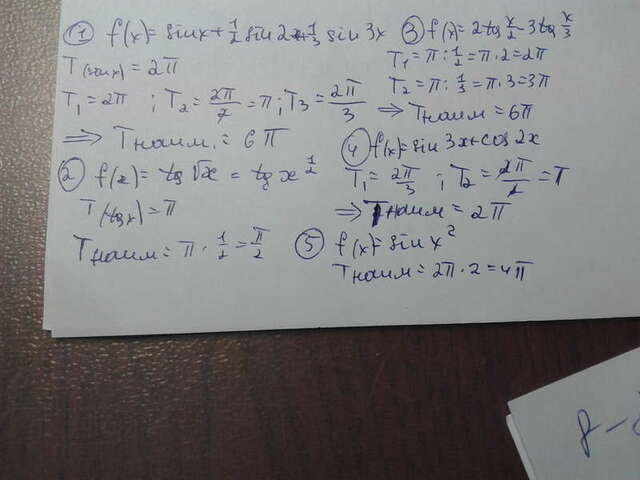 ① f(x)= sinx+1/2 sin 2x+1/3 sin 3x
T(sinx)=2π
T₁=2π ; T₂=2π/2=π; T₃=2π/3
⇒ Tнаим.=6π
② f(x)= tg √x = tg x^1/2
T(tgx)=π
Tнаим=π·1/2=π/2
③ f(x)=2tg x/2-3tg x/3
T₁=π:1/2=π·2=2π
T₂=π:1/3=π·3=3π
⇒ Tнаим=6π
④ f(x)=sin 3x+cos 2x
T₁=2π/3 ; T₂=2π/2=π
⇒ Tнаим=2π
⑤ f(x)=sinx²
Tнаим=2π·2=4π